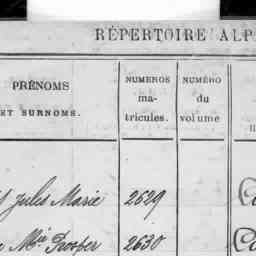 RÉPERTOIRE ALP
PRÉNOMS
ET SURNOMS.
NUMEROS
ma-
tricules.
NUMÉRO
du
volume
Jules Marie 2629
Mie Prosper 2630